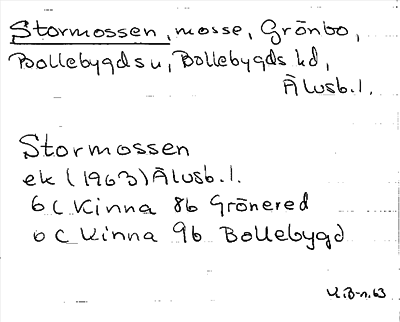 Stormossen, mosse, Grönbo,
Bollebygds u, Bollebygds hd,
Älvsb. l.
Stormossen
ek (1963) Älvsb. l.
6 C Kinna 8b Grönered
6 C Kinna 9b Bollebygd